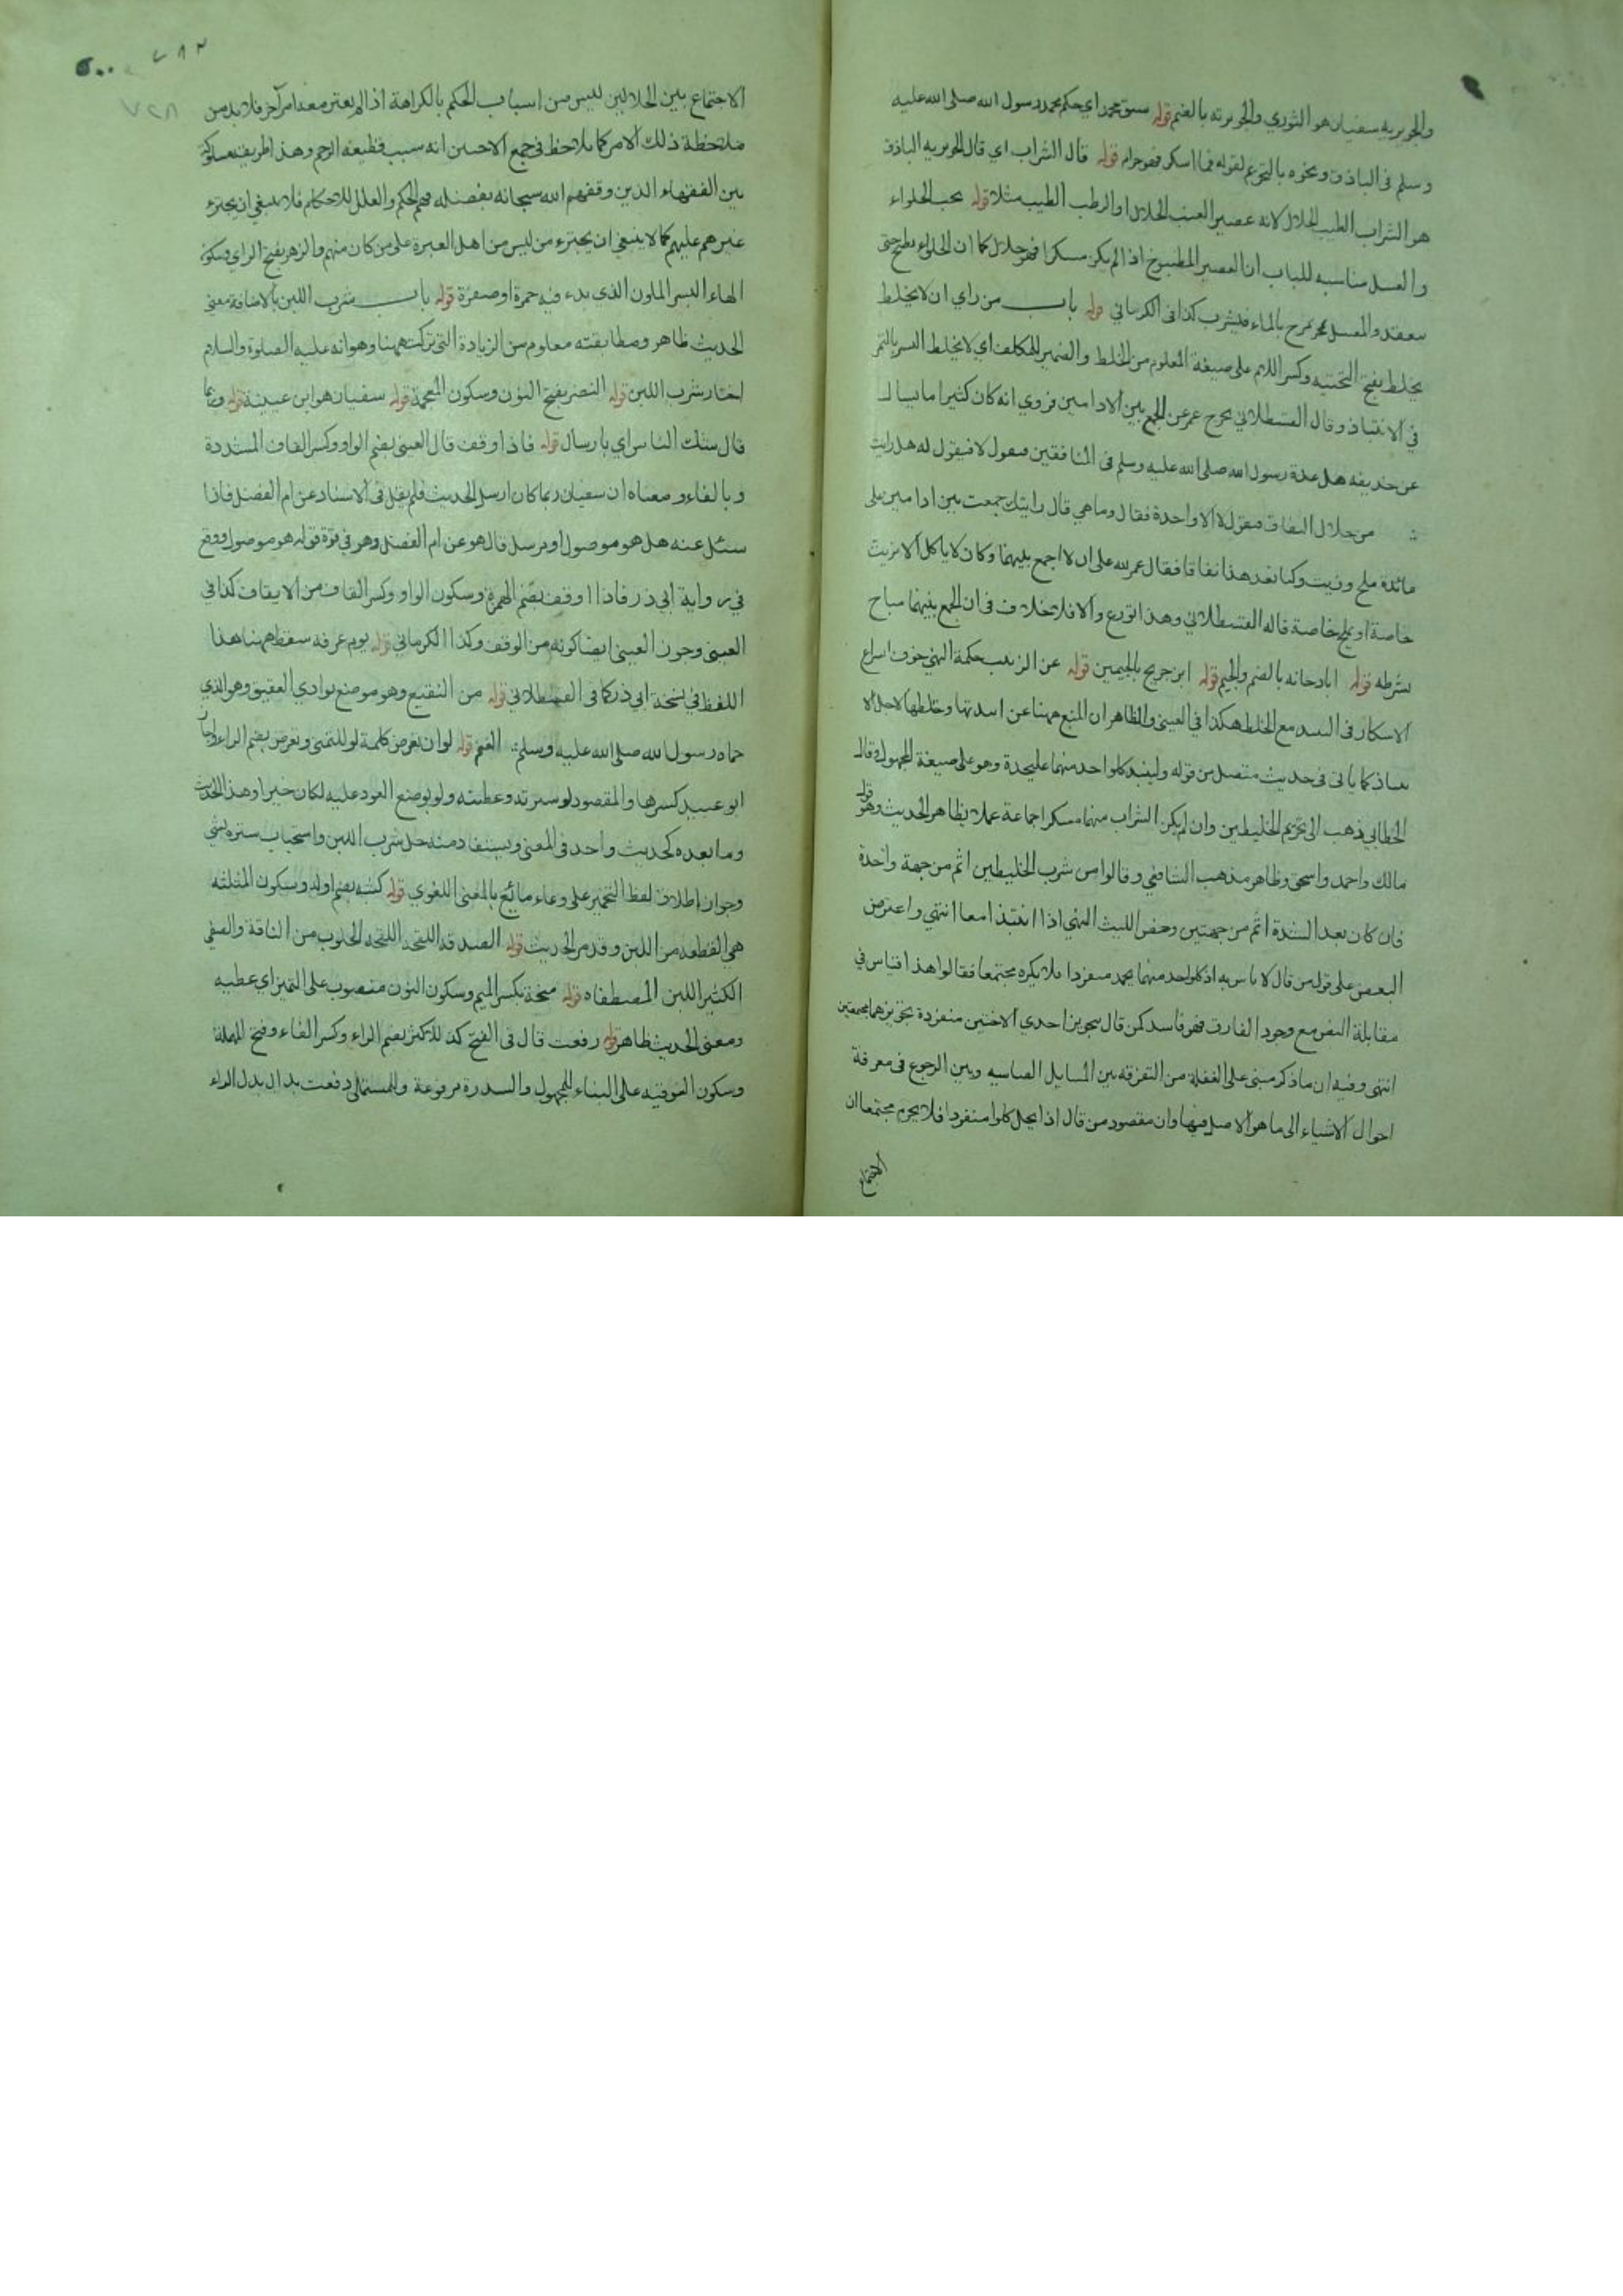 والجويريه سفيان هو الثوري والجويرته بالضم قوله سبق محمد اي حكم محمد رسول الله صلى الله عليه
وسلم في الباذق ونحوه بالتحريم لقوله فما اسكر فهو حرام قوله قال الشراب اي قال الجويريه الباذق
هو الشراب الطيب الحلال لانه عصير العنب الحلال او الرطب الطيب مثلا قوله يحب الحلواء
والعسل مناسبه للباب ان العصير المطبوخ اذا لم يكن مسكرا فهو حلال كما ان الحلواء يطبخ حتى
سعقد والعسل يمزج بالماء فيشرب كذا في الكرماني قوله باب من راي ان لا يخلط
يخلط بفتح التحتيه وكسر اللام على صيغة المعلوم من الخلط والضمير للمكلف اي لا يخلط البسر بالتمر
في الانتباذ وقال القسطلاني تحرج عمر عن الجمع بين الادامين فروي انه كان كثيرا ما يسال
عن حذيفه هل عده رسول الله صلى الله عليه وسلم في المنافقين فيقول لا فيقول له هل رايت
من خلال النفاق فيقول لا الا واحدة فقال وما هي قال رايتك جمعت بين ادامين على
مائدة ملح وزيت وكنا نعد هذا نفاقا فقال عمر لله علي ان لا اجمع بينهما وكان لا ياكل الا بزيت
خاصة او بملح خاصة قاله القسطلاني وهذا تورع والا فلا خلاف في ان الجمع بينهما مباح
بشرطه قوله ابا دجانه بالضم والجيم قوله ابن جريج بالجيمين قوله عن الزبيب حكمة النهي خوف اسراع
الاسكار في البسر مع الخلط هكذا في العيني والظاهر ان المنع ههنا عن انتباذها وخلطها لاجل الا
نتباذ كما ياتي في حديث متصل من قوله ولينبذ كل واحد منهما عليحدة وهو على صيغة المجهول وقال
الخطابي ذهب الى تحريم الخليطين وان لم يكن الشراب منهما مسكرا جماعة عملا بظاهر الحديث وهو قول
مالك واحمد واسحق وظاهر مذهب الشافعي وقالوا من شرب الخليطين اثم من جهة واحدة
فان كان بعد الشدة اثم من جهتين وخص الليث النهي اذا انتبذا معا انتهي واعترض
البعض على قول من قال لا باس به اذ كل واحد منهما يحمد منفردا فلا يكره مجتمعا فقالوا هذا قياس في
مقابلة النص مع وجود الفارق فهو فاسد كمن قال بتجويز احدي الاختين منفردة بتجويزهما مجتمعتين
انتهى وفيه ان ما ذكر مبني على الغفلة من التفرقه بين المسايل القياسيه وبين الرجوع في معرفة
احوال الاشياء الى ما هو الاصل فيها وان مقصود من قال اذا يحل كلوا منفردا فلا يحرم مجتمعا ان
الاجتماع
الاجتماع بين الحلالين ليس من اسباب الحكم بالكراهة اذا لم يعتبر معه امر آخر فلا بد من
ملاحظة ذلك الامر كما يلاحظ في جمع الاختين انه سبب قطيعه الرحم وهذا طريقه مسلوكة
بين الفقهاء الذين وقفهم الله سبحانه بفضله فهم الحكم والعلل للاحكام فلا ينبغي ان يجترء
غيرهم عليهم كما لا ينبغي ان يجترء من ليس من اهل العبرة على من كان منهم والزهو بفتح الزاي وسكون
الهاء البسر الملون الذي بدء فيه حمرة او صفرة قوله باب شرب اللبن بالاضافة معنى
الحديث ظاهر ومطابقته معلوم من الزيادة التي تركت ههنا وهو انه عليه الصلوة والسلام
اختار شرب اللبن قوله النضر بفتح النون وسكون المعجمة قوله سفيان هو ابن عيينة قوله وربما
قال شك الناس اي بارسال قوله فاذا وقف قال العيني بضم الواو وكسر القاف المشددة
وبالفاء ومعناه ان سفيان ربما كان ارسل الحديث فلم يقل في الاسناد عن ام الفضل فاذا
سئل عنه هل هو موصول او مرسل قال هو عن ام الفضل وهو في قوة قوله هو موصول ووقع
في رواية ابي ذر فاذا اوقف بضم الهمزة وسكون الواو وكسر القاف من الايقاف كذا في
العيني وجوز العيني ايضا كونه من الوقف وكذا الكرماني قوله يوم عرفه سقط ههنا هذا
اللفظ في نسخة ابي ذر كما في القسطلاني قوله من النقيع وهو موضع بوادي العقيق وهو الذي
حماه رسول الله صلى الله عليه وسلم الغنم قوله لو ان تعرض كلمة لو للتمني وتعرض بضم الراء واجاز
ابو عبيد كسرها والمقصود لو سترته وغطيته ولو بوضع العود عليه لكان خيرا وهذا الحديث
وما بعده كحديث واحد في المعنى ويستفاد منه حل شرب اللبن واستحباب ستره بشي
وجواز اطلاق لفظ التخمير على وعاء مائع بالمعنى اللغوي قوله كثبه بضم اوله وسكون المثلثه
هي القطعه من اللبن وقد مر الحديث قوله الصدقه اللقحه اللقحه الحلوب من الناقة والصفي
الكثير اللبن المصطفاه قوله منحة بكسر الميم وسكون النون منصوب على التميز اي عطيه
ومعنى الحديث ظاهر قوله رفعت قال في الفتح كذا للاكثر بضم الراء وكسر الفاء وفتح المهملة
وسكون الفوقيه على البناء للمجهول والسدرة مرفوعة وللمستملي دفعت بدال بدل الراء